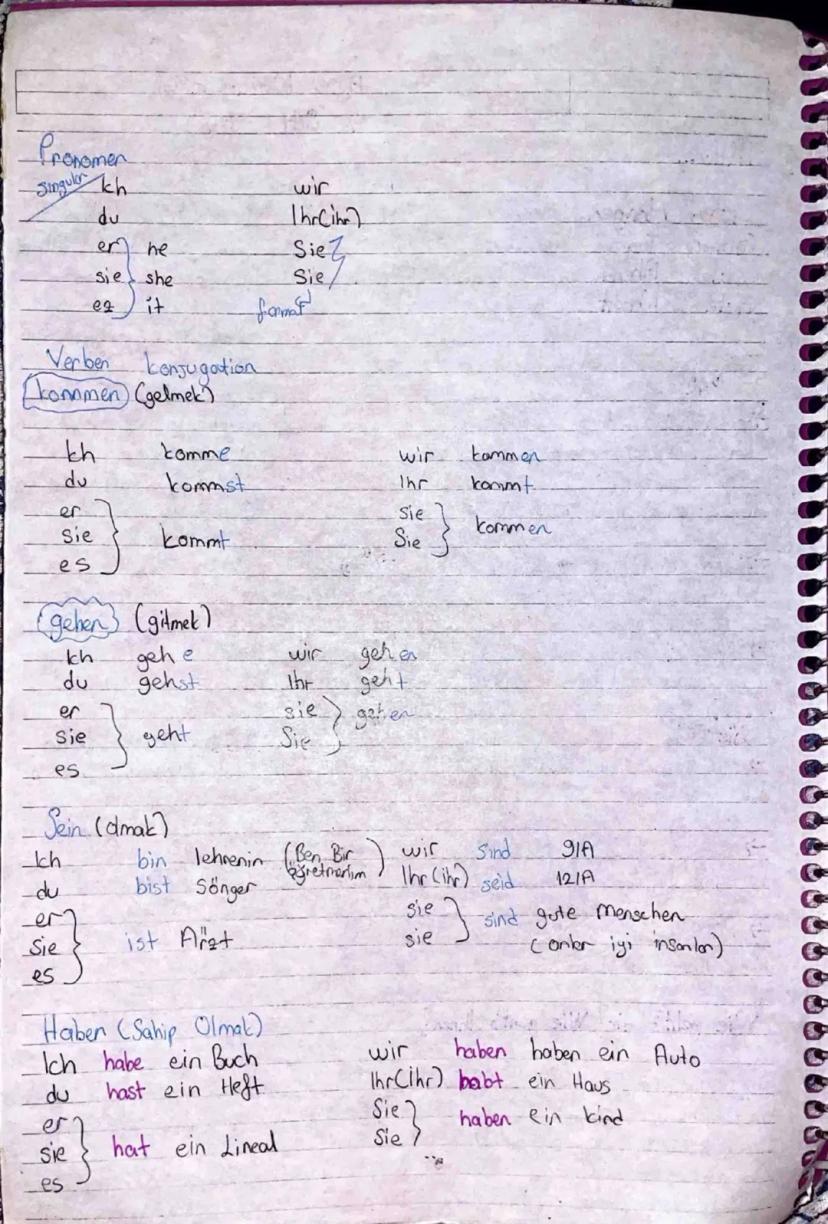 Pronomen
singular Ich wir
du Ihr(ihr)
er he Sie
sie she Sie
es it format
Verben konjugation
kommen (gelmek)
Ich komme wir kommen
du kommst Ihr kommt
er sie
sie kommt Sie kommen
es
gehen (gitmek)
Ich gehe wir gehen
du gehst Ihr geht
er sie gehen
sie geht Sie
es
Sein (olmak)
Ich bin lehrerin (Ben Bir öğretmenim) wir sind 9/A
du bist Sänger Ihr(ihr) seid 12/A
er sie sind gute Menschen
sie ist Arzt sie (onlar iyi insanlar)
es
Haben (Sahip Olmak)
Ich habe ein Buch wir haben haben ein Auto
du hast ein Heft Ihr(ihr) habt ein Haus
er Sie haben ein kind
sie hat ein Lineal Sie
es